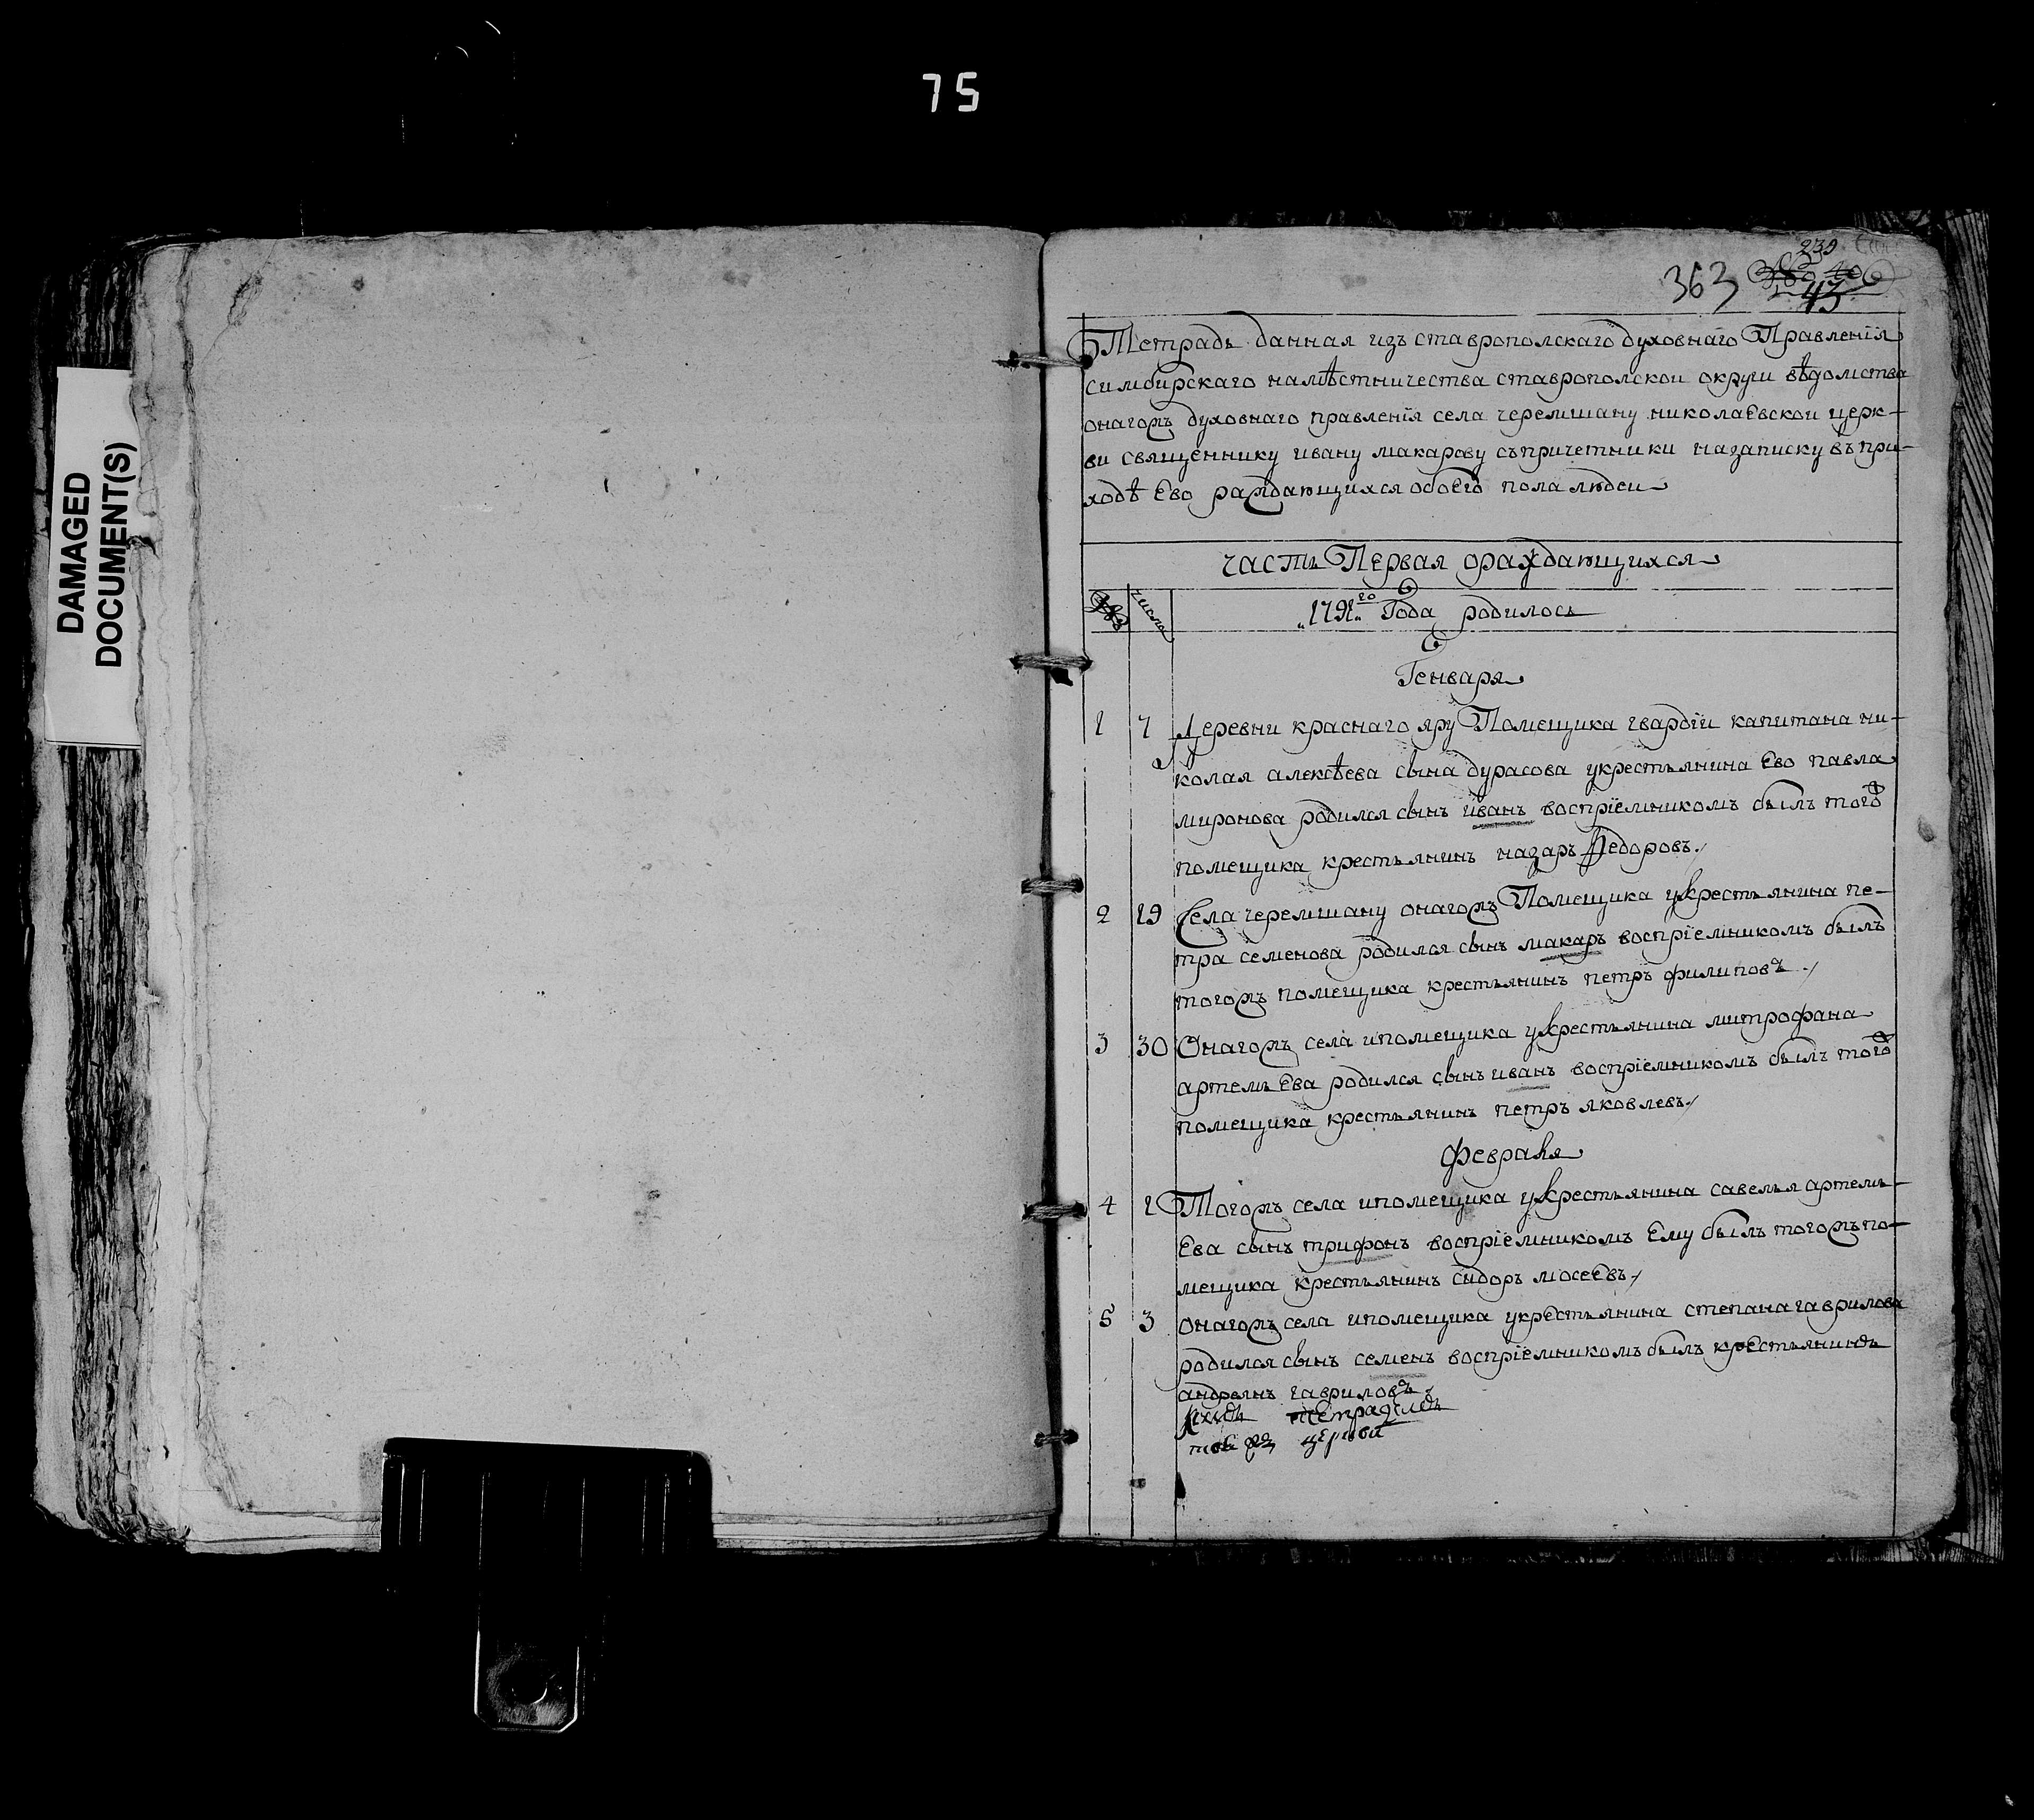 75
DAMAGED
DOCUMENT(S)
239
363
43
Тетрадь данная изъ ставрополскаго духовнаго Правленія
симбирскаго намѣстничества ставрополскои округи вѣдомства
онагожъ духовнаго правленія села черемшану николаевскои церк-
ви священнику ивану макарову съпричетники назаписку въ при-
ходѣ Ево раждающихся обоего пола людеи
часть Первая ораждающихся
числа
1791го Года родилось
Генваря
1 7 Деревни краснаго яру Помещика гвардіи капитана ни-
колая алексѣева сына дурасова укрестьянина Ево павла
миронова родился сынъ иванъ воспріемникомъ былъ тогожъ
помещика крестьянинъ назаръ Федоровъ
2 19 Села черемшану онагожъ Помещика укрестьянина пе-
тра семенова родился сынъ макаръ воспріемникомъ былъ
тогожъ помещика крестьянинъ петръ филиповъ
3 30 Онагожъ села ипомещика укрестьянина митрофана
артемьева родился сынъ иванъ воспріемникомъ былъ тогожъ
помещика крестьянинъ петръ яковлевъ
февраля
4 1 Тогожъ села ипомещика укрестьянина савелья артемь-
ева сынъ трифонъ воспріемникомъ Ему былъ тогожъ по-
мещика крестьянинъ сидоръ мосеевъ
5 3 онагожъ села ипомещика укрестьянина степана гаврилова
родился сынъ семенъ воспріемникомъ былъ крестьянинъ
андреянъ гавриловъ
церкви